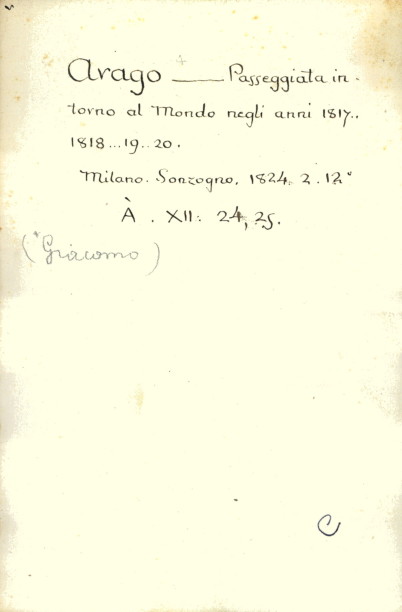 Arago — Passeggiata in-
torno al Mondo negli anni 1817..
1818...19..20.
Milano. Sonzogno. 1824. 2. 12°
À. XII. 24, 25.
(*Giacomo)
C